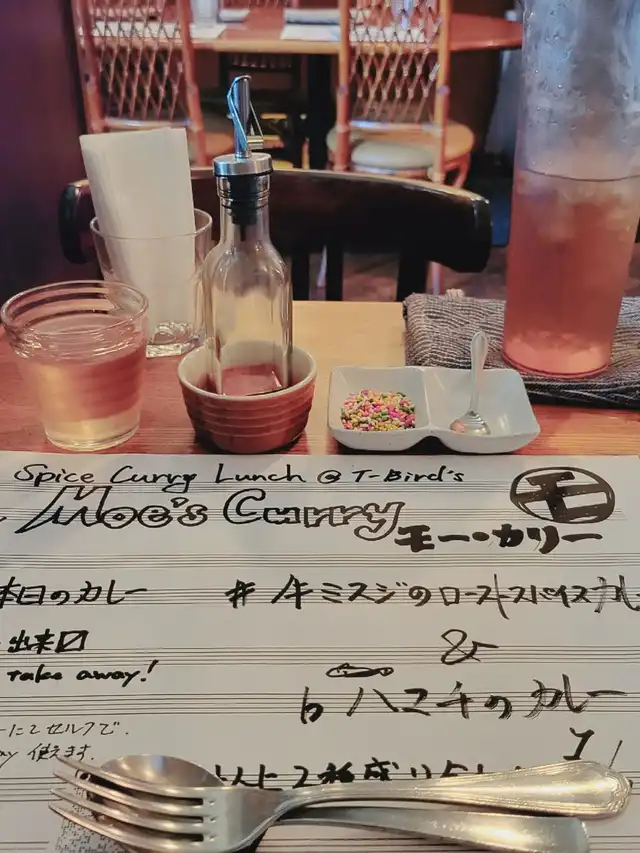 Spice Curry Lunch @ T-Bird's
Moe's Curry
モ
モー・カリー
本日のカレー
# 牛ミスジのローストスパイスカレー
出来〼
take away!
&
b ハマチのカレー
ーにてセルフで.
ay 使えます.